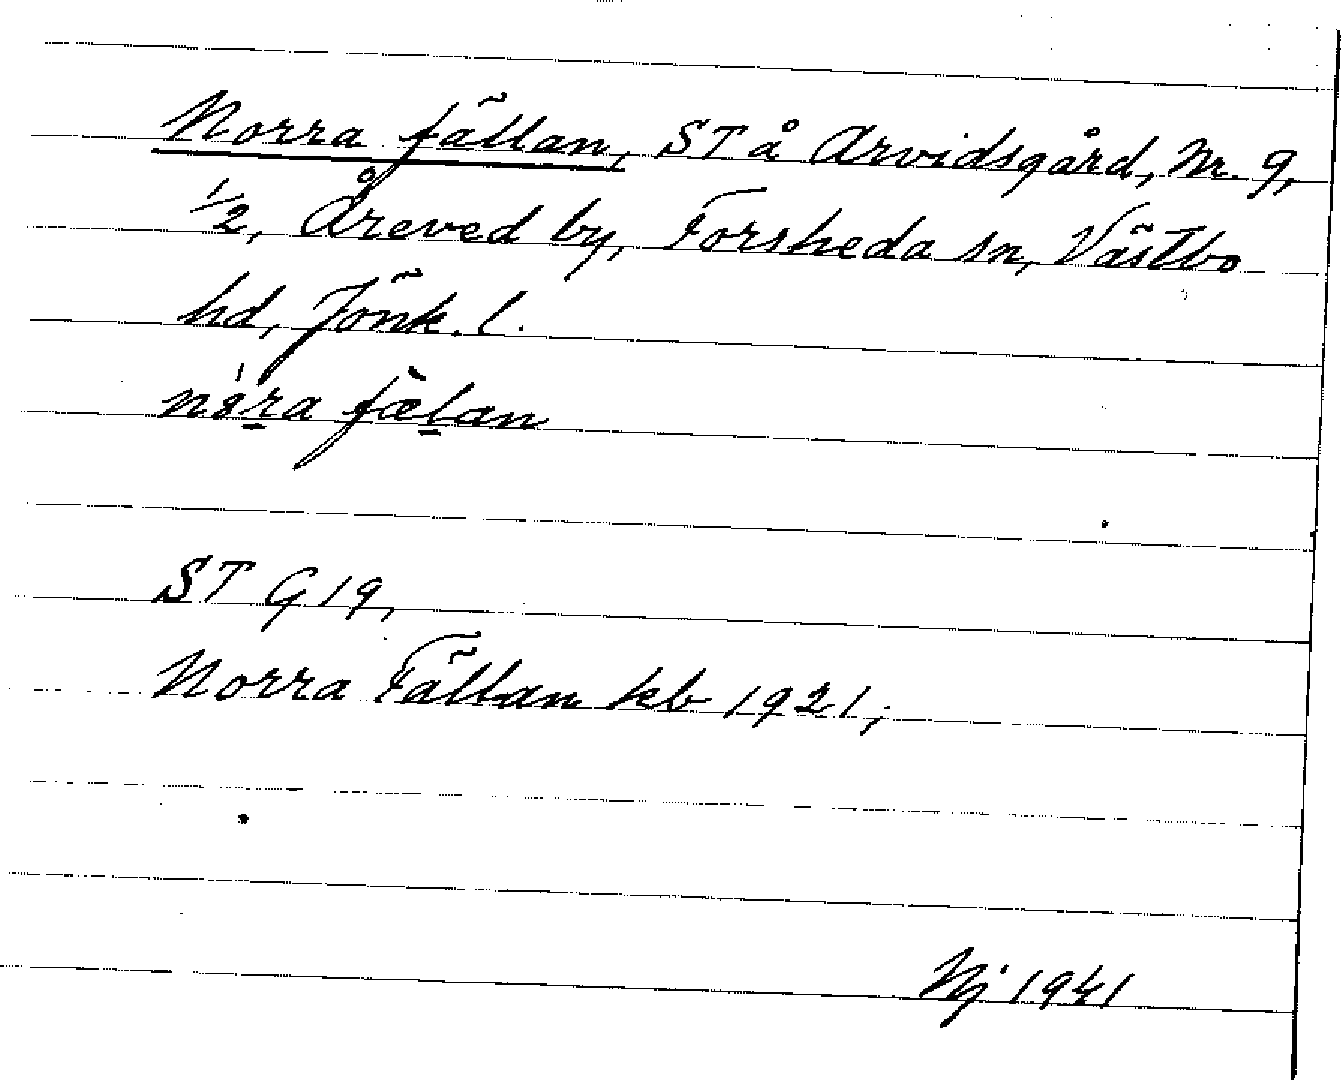 Norra fällan, ST å Arvidsgård, Nr. 9,
1/2, Åreved by, Forsheda sn, Västbo
hd, Jönk. l.
fälan
ST G19,
Norra Fällan kb 1921;
Nj 1941